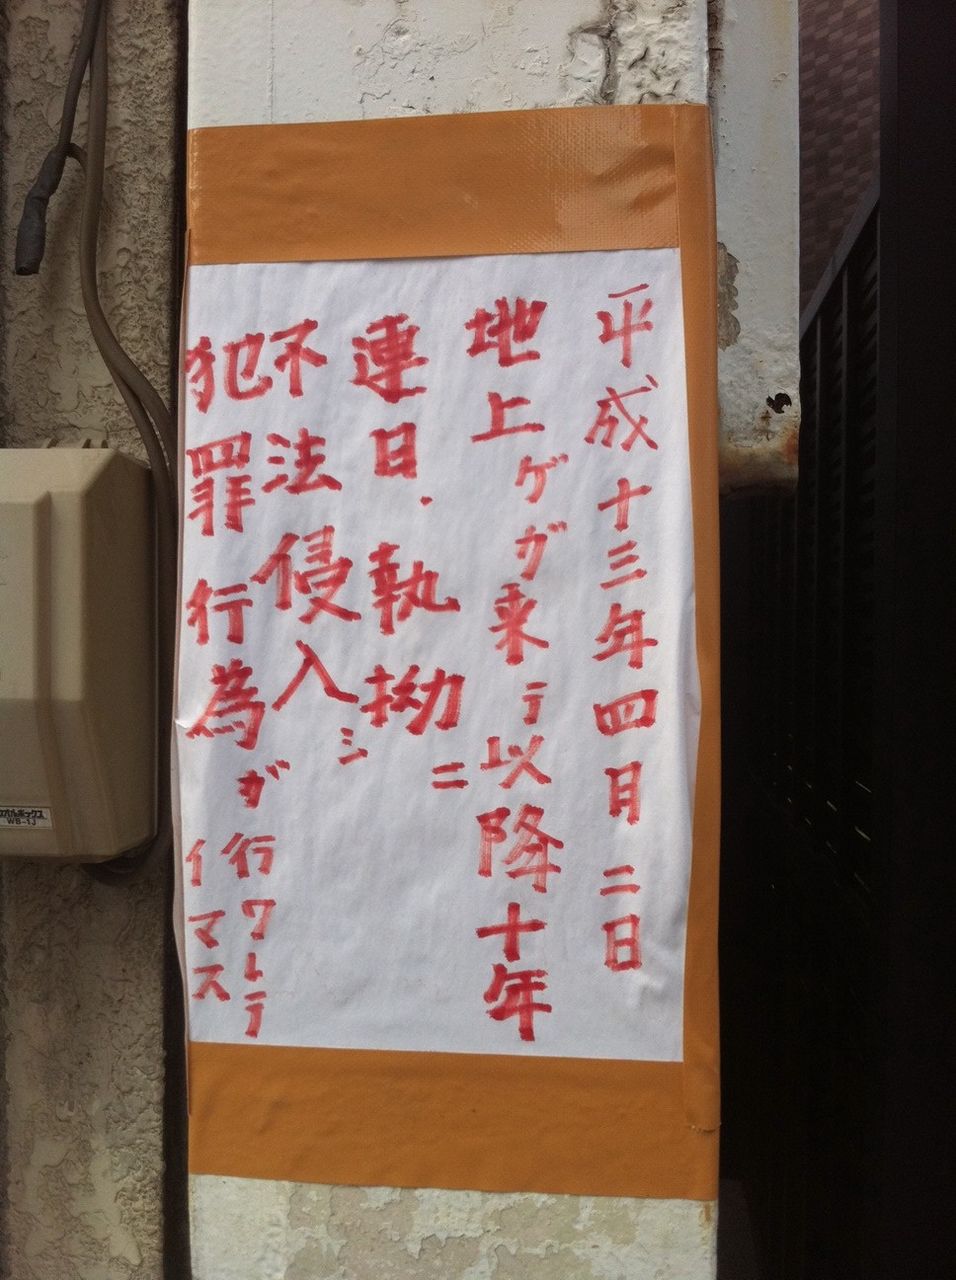 平成十三年四月二日
地上ゲガ来テ以降十年
連日、執拗ニ
不法侵入シ
犯罪行為ガ行ワレテイマス
WB-1J